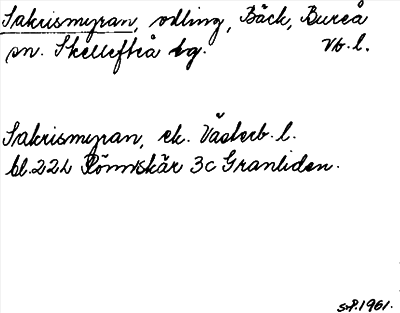 Sakrismyran, odling, Bäck, Bureå
sn. Skellefteå tg. Vb. l.
Sakrismyran, ek. Västerb. l.
bl. 22L Rönnskär 3c Granliden.
S.P. 1961.